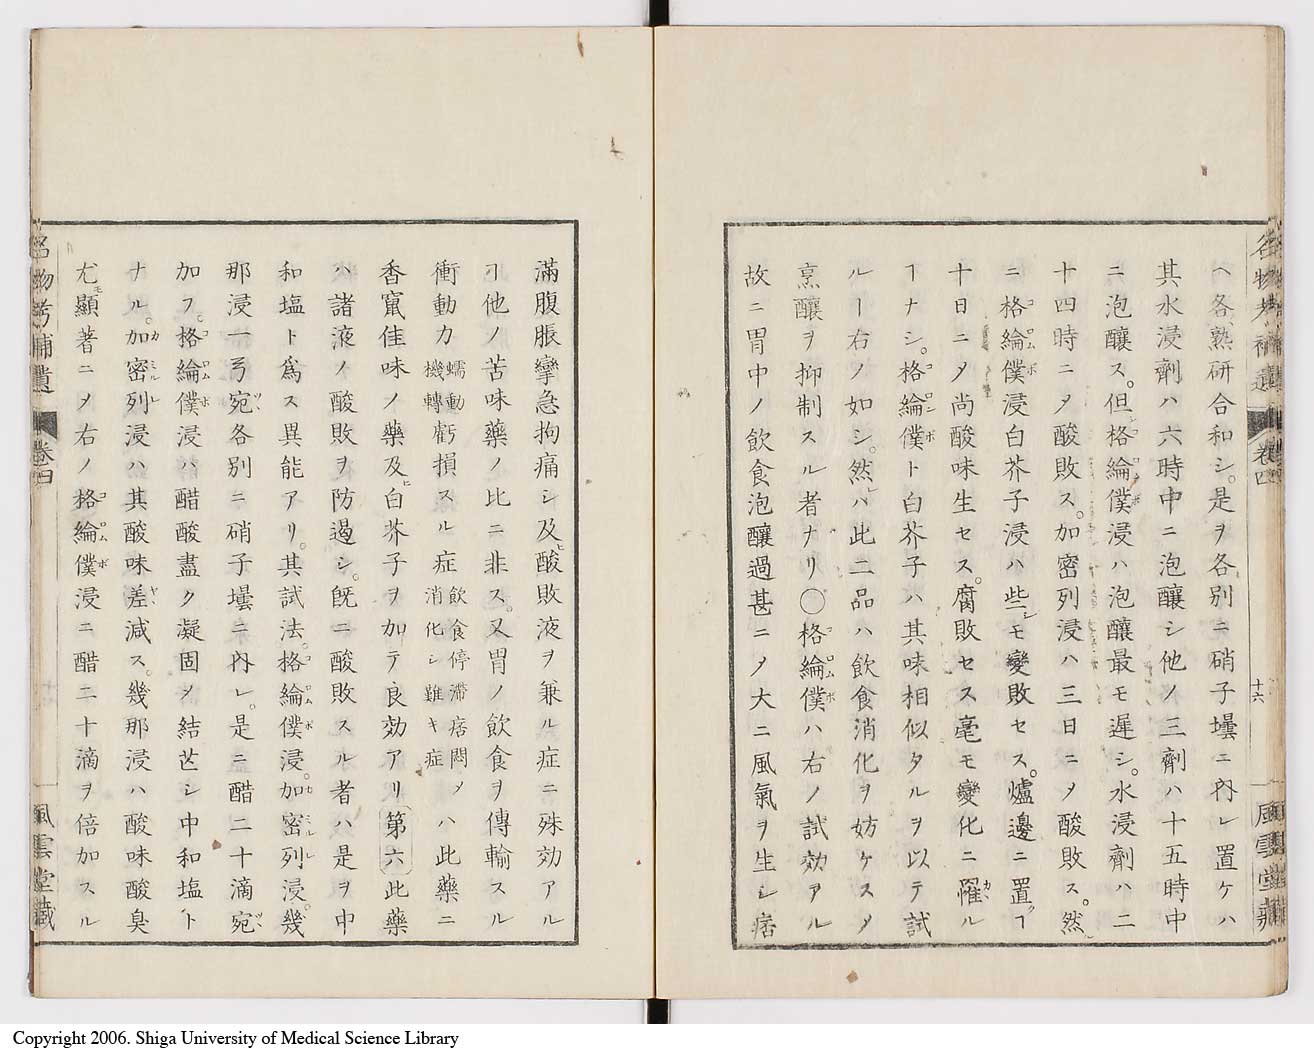 ヘ各熟研合和シ。是ヲ各別ニ硝子壜ニ內レ置ケハ
其水浸劑ハ六時中ニ泡釀シ他ノ三劑ハ十五時中
ニ泡釀ス。但格綸僕浸ハ泡釀最モ遲シ。水浸劑ハ二
十四時ニ〆酸敗ス。加密列浸ハ三日ニ〆酸敗ス。然
ニ格綸僕浸白芥子浸ハ些モ變敗セス。爐邊ニ置ヿ
十日ニ〆尚酸味生セス。腐敗セス毫モ變化ニ罹ル
ヿナシ。格綸僕ト白芥子ハ其味相似タルヲ以テ試
ルヿ右ノ如シ。然ハ此二品ハ飲食消化ヲ妨ケス〆
烹釀ヲ抑制スル者ナリ〇格綸僕ハ右ノ試効アル
故ニ胃中ノ飲食泡釀過甚ニ〆大ニ風氣ヲ生シ痞
名物考補遺 卷四 十六 風雲堂藏
滿腹脹攣急拘痛シ及酸敗液ヲ兼ル症ニ殊効アル
ヿ他ノ苦味藥ノ比ニ非ス。又胃ノ飲食ヲ傳輸スル
衝動力蠕動機轉虧損スル症飲食停滯痞悶〆消化シ難キ症ハ此藥ニ
香竄佳味ノ藥及白芥子ヲ加テ良効アリ第六此藥
ハ諸液ノ酸敗ヲ防遏シ。既ニ酸敗スル者ハ是ヲ中
和塩ト爲ス異能アリ。其試法。格綸僕浸。加密列浸。幾
那浸一弓宛各別ニ硝子壜ニ內レ。是ニ醋二十滴宛
加フ。格綸僕浸ハ醋酸盡ク凝固〆結芒シ中和塩ト
ナル。加密列浸ハ其酸味差減ス。幾那浸ハ酸味酸臭
尤顯著ニ〆右ノ格綸僕浸ニ醋二十滴ヲ倍加スル
名物考補遺 卷四 風雲堂藏
Copyright 2006. Shiga University of Medical Science Library